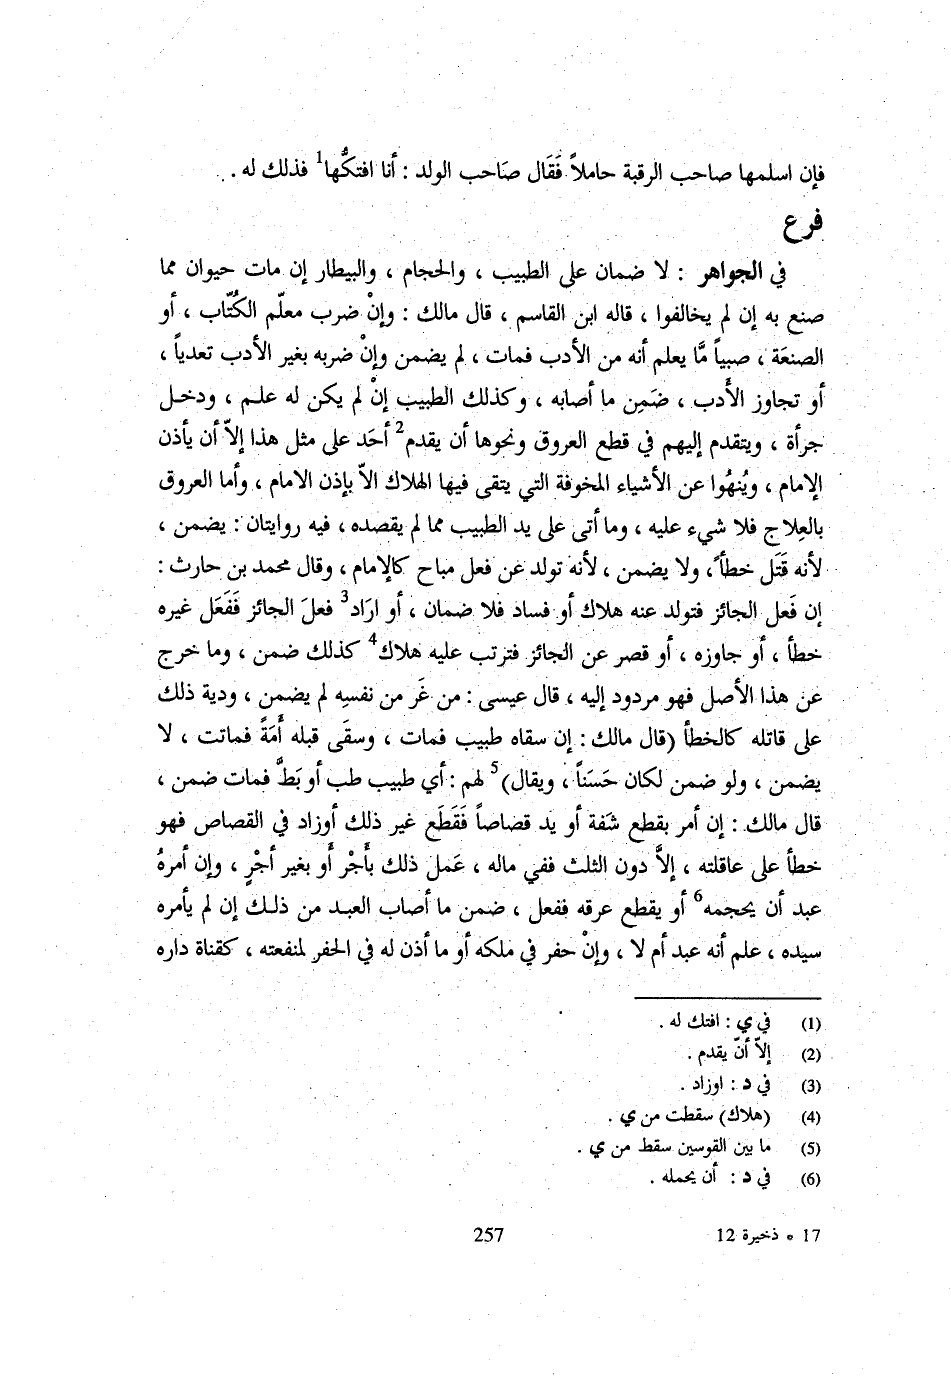 فإن اسلمها صاحب الرقبة حاملاً فَقَال صَاحب الولد : أنا افتكُّها1 فذلك له .
فرع
في الجواهر : لا ضمان على الطبيب ، والحجام ، والبيطار إن مات حيوان مما
صنع به إن لم يخالفوا ، قاله ابن القاسم ، قال مالك : وإنْ ضرب معلّم الكُتّاب ، أو
الصنعَة ، صبياً مَّا يعلم أنه من الأدب فمات ، لم يضمن وإنْ ضربه بغير الأدب تعدياً ،
أو تجاوز الأَدب ، ضَمِن ما أصابه ، وكذلك الطبيب إنْ لم يكن له علم ، ودخل
جرأة ، ويتقدم إليهم في قطع العروق ونحوها أن يقدم2 أحَد على مثل هذا إلاّ أن يأذن
الإمام ، ويُنهُوا عن الأشياء المخوفة التي يتقى فيها الهلاك الاّ بإذن الامام ، وأما العروق
بالعِلاج فلا شيء عليه ، وما أتى على يد الطبيب مما لم يقصده ، فيه روايتان : يضمن ،
لأنه قَتَل خطأً ، ولا يضمن ، لأنه تولد عن فعل مباح كالإمام ، وقال محمد بن حارث :
إن فَعل الجائز فتولد عنه هلاك أو فساد فلا ضمان ، أو ارَاد3 فعلَ الجائز فَفَعَل غيره
خطأ ، أو جاوزه ، أو قصر عن الجائز فترتب عليه هلاك4 كذلك ضمن ، وما خرج
عن هذا الأصل فهو مردود إليه ، قال عيسى : من غَر من نفسِه لم يضمن ، ودية ذلك
على قاتله كالخطأ (قال مالك : إن سقاه طبيب فمات ، وسقَى قبله أَمَةً فماتت ، لا
يضمن ، ولو ضمن لكان حَسَناً ، ويقال)5 لهم : أي طبيب طب أو بَطَّ فمات ضمن ،
قال مالك : إن أمر بقطع شَفة أو يد قصاصاً فَقَطَع غير ذلك أوزاد في القصاص فهو
خطأ على عاقلته ، إلاَّ دون الثلث ففي ماله ، عَمل ذلك بأَجْر أَو بغير أجْرٍ ، وإن أمرهُ
عبد أن يحجمه6 أو يقطع عرقه ففعل ، ضمن ما أصاب العبد من ذلك إن لم يأمره
سيده ، علم أنه عبد أم لا ، وإنْ حفر في ملكه أو ما أذن له في الحفر لمنفعته ، كقناة داره
(1) في ي : افتك له .
(2) إلاّ أنّ يقدم .
(3) في د : اوزاد .
(4) (هلاك) سقطت من ي .
(5) ما بين القوسين سقط من ي .
(6) في د : أن يحمله .
17 ه ذخيرة 12
257